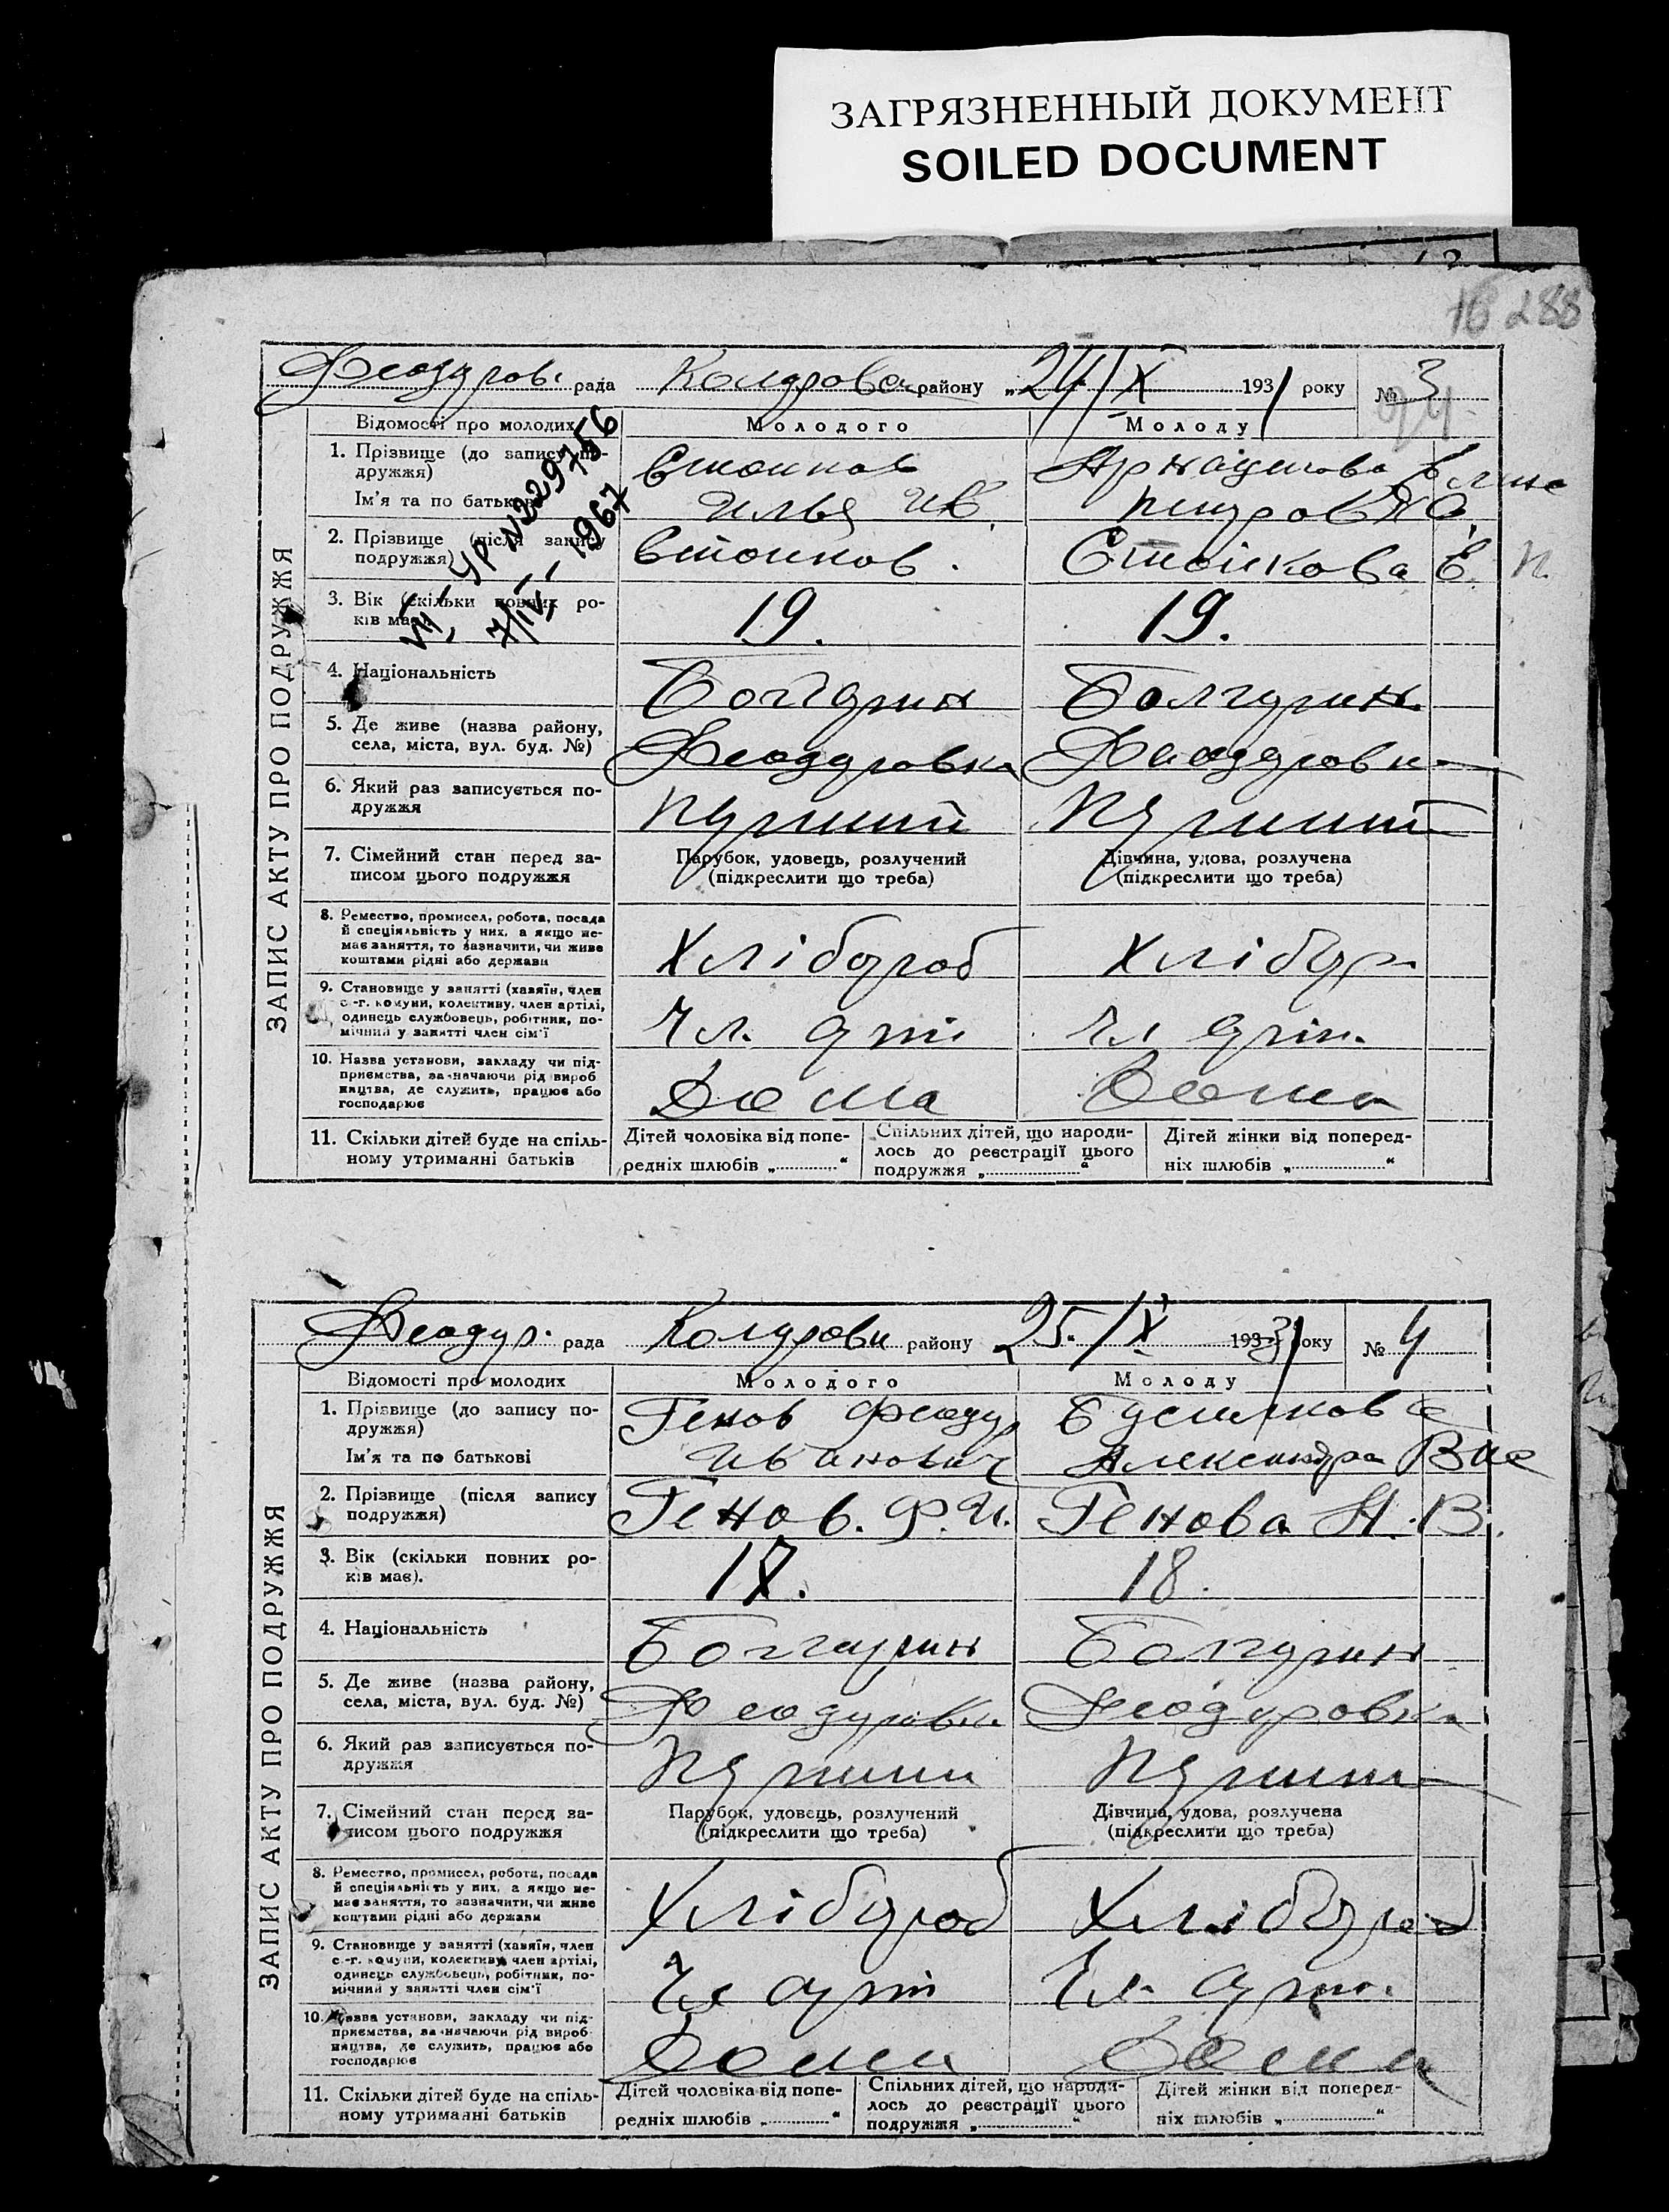 ЗАГРЯЗНЕННЫЙ ДОКУМЕНТ
SOILED DOCUMENT
16 288
рада району „24/X 1931 року № 3
94
Відомості про молодих Молодого Молоду
1. Прізвище (до запису по-
дружжя)
Стоиков
Ім'я та по батькові
Илья Ив.
2. Прізвище (після запису
подружжя)
Стоиков. Стоікова Е. П.
VII-УР №229756
7/IV-1967
3. Вік (скільки повних ро-
ків має).
19. 19.
4. Національність
Болгарин Болгарин
5. Де живе (назва району,
села, міста, вул. буд. №)
Феодоровка
6. Який раз записується по-
дружжя
7. Сімейний стан перед за-
писом цього подружжя
Парубок, удовець, розлучений
(підкреслити що треба)
Дівчина, удова, розлучена
(підкреслити що треба)
8. Ремество, промисел, робота, посада
й спеціяльність у них, а якщо не-
має заняття, то зазначити, чи живе
коштами рідні або держави
Хлібороб Хлібор
9. Становище у занятті (хазяїн, член
с.-г. комуни, колективу, член артілі,
одинець службовець, робітник, по-
мічний у занятті член сім'ї
Чл. арті Чл артіл.
10. Назва установи, закладу чи під-
приємства, зазначаючи рід вироб
ництва, де служить, працює або
господарює
Дома Дома
11. Скільки дітей буде на спіль-
ному утриманні батьків
Дітей чоловіка від попе-
редніх шлюбів „ “
Спільних дітей, що народи-
лось до реєстрації цього
подружжя „ “
Дітей жінки від поперед-
ніх шлюбів „ “
ЗАПИС АКТУ ПРО ПОДРУЖЖЯ
Феодор. рада району 25./X 1931 року № 4
Відомості про молодих Молодого Молоду
1. Прізвище (до запису по-
дружжя)
Генов Феодор
Ім'я та по батькові
Иванович Александра Вас
2. Прізвище (після запису
подружжя)
Генов. Ф. И. Генова А. В.
3. Вік (скільки повних ро-
ків має).
18.
4. Національність
Болгарин Болгарин
5. Де живе (назва району,
села, міста, вул. буд. №)
Феодоровка Феодоровка
6. Який раз записується по-
дружжя
7. Сімейний стан перед за-
писом цього подружжя
Парубок, удовець, розлучений
(підкреслити що треба)
Дівчина, удова, розлучена
(підкреслити що треба)
8. Ремество, промисел, робота, посада
й спеціяльність у них, а якщо не-
має заняття, то зазначити, чи живе
коштами рідні або держави
Хлібороб Хлібороб
9. Становище у занятті (хазяїн, член
с.-г. комуни, колективу, член артілі,
одинець службовець, робітник, по-
мічний у занятті член сім'ї
Чл арт Чл. арті.
10. Назва установи, закладу чи під-
приємства, зазначаючи рід вироб-
ництва, де служить, працює або
господарює
Дома Дома
11. Скільки дітей буде на спіль-
ному утриманні батьків
Дітей чоловіка від попе-
редніх шлюбів „ “
Спільних дітей, що народи-
лось до реєстрації цього
подружжя „ “
Дітей жінки від поперед-
ніх шлюбів „ “
ЗАПИС АКТУ ПРО ПОДРУЖЖЯ